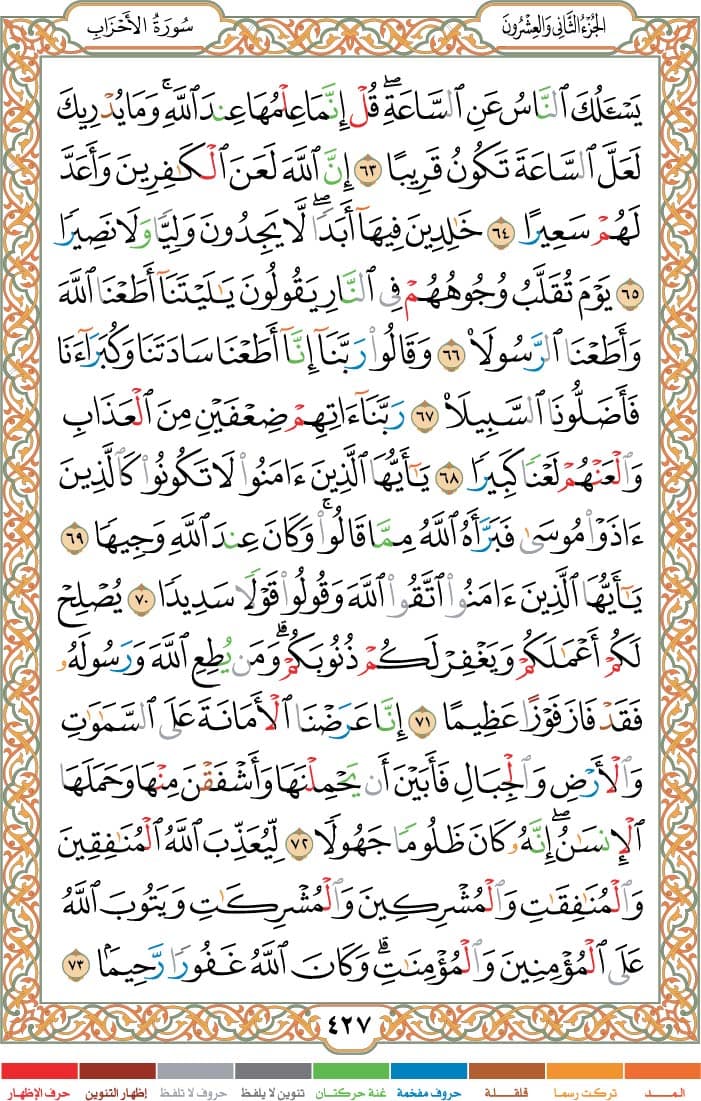 الجُزْءُ الثَّانِي وَالعِشْرُونَ
سُورَةُ الأَحْزَابِ
يَسْـَٔلُكَ ٱلنَّاسُ عَنِ ٱلسَّاعَةِۖ قُلْ إِنَّمَا عِلْمُهَا عِندَ ٱللَّهِۚ وَمَا يُدْرِيكَ
لَعَلَّ ٱلسَّاعَةَ تَكُونُ قَرِيبًا ٦٣ إِنَّ ٱللَّهَ لَعَنَ ٱلْكَٰفِرِينَ وَأَعَدَّ
لَهُمْ سَعِيرًا ٦٤ خَٰلِدِينَ فِيهَآ أَبَدًاۖ لَّا يَجِدُونَ وَلِيًّا وَلَا نَصِيرًا
٦٥ يَوْمَ تُقَلَّبُ وُجُوهُهُمْ فِى ٱلنَّارِ يَقُولُونَ يَٰلَيْتَنَآ أَطَعْنَا ٱللَّهَ
وَأَطَعْنَا ٱلرَّسُولَا۠ ٦٦ وَقَالُوا۟ رَبَّنَآ إِنَّآ أَطَعْنَا سَادَتَنَا وَكُبَرَآءَنَا
فَأَضَلُّونَا ٱلسَّبِيلَا۠ ٦٧ رَبَّنَآ ءَاتِهِمْ ضِعْفَيْنِ مِنَ ٱلْعَذَابِ
وَٱلْعَنْهُمْ لَعْنًا كَبِيرًا ٦٨ يَٰٓأَيُّهَا ٱلَّذِينَ ءَامَنُوا۟ لَا تَكُونُوا۟ كَٱلَّذِينَ
ءَاذَوْا۟ مُوسَىٰ فَبَرَّأَهُ ٱللَّهُ مِمَّا قَالُوا۟ۚ وَكَانَ عِندَ ٱللَّهِ وَجِيهًا ٦٩
يَٰٓأَيُّهَا ٱلَّذِينَ ءَامَنُوا۟ ٱتَّقُوا۟ ٱللَّهَ وَقُولُوا۟ قَوْلًا سَدِيدًا ٧٠ يُصْلِحْ
لَكُمْ أَعْمَٰلَكُمْ وَيَغْفِرْ لَكُمْ ذُنُوبَكُمْۗ وَمَن يُطِعِ ٱللَّهَ وَرَسُولَهُۥ
فَقَدْ فَازَ فَوْزًا عَظِيمًا ٧١ إِنَّا عَرَضْنَا ٱلْأَمَانَةَ عَلَى ٱلسَّمَٰوَٰتِ
وَٱلْأَرْضِ وَٱلْجِبَالِ فَأَبَيْنَ أَن يَحْمِلْنَهَا وَأَشْفَقْنَ مِنْهَا وَحَمَلَهَا
ٱلْإِنسَٰنُۖ إِنَّهُۥ كَانَ ظَلُومًا جَهُولًا ٧٢ لِّيُعَذِّبَ ٱللَّهُ ٱلْمُنَٰفِقِينَ
وَٱلْمُنَٰفِقَٰتِ وَٱلْمُشْرِكِينَ وَٱلْمُشْرِكَٰتِ وَيَتُوبَ ٱللَّهُ
عَلَى ٱلْمُؤْمِنِينَ وَٱلْمُؤْمِنَٰتِۗ وَكَانَ ٱللَّهُ غَفُورًا رَّحِيمًا ٧٣
٤٢٧
المـــد تركت رسما قلقـلة حروف مفخمة غنة حركتـان تنوين لا يلفظ حروف لا تلفظ إظهار التنوين حرف الإظهار